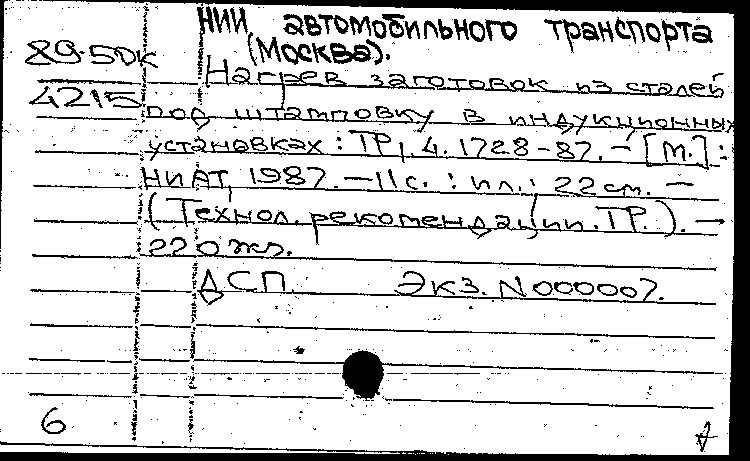 НИИ автомобильного транспорта
(Москва).
89-5ДК
4215
Нагрев заготовок из сталей
под штамповку в индукционных
установках : ТР1.4.1728-87. – [М.] :
НИАТ, 1987. – 11 с. : ил.; 22 см. –
(Технол. рекомендации. ТР.). –
220 экз.
ДСП. Экз. N 000007.
6